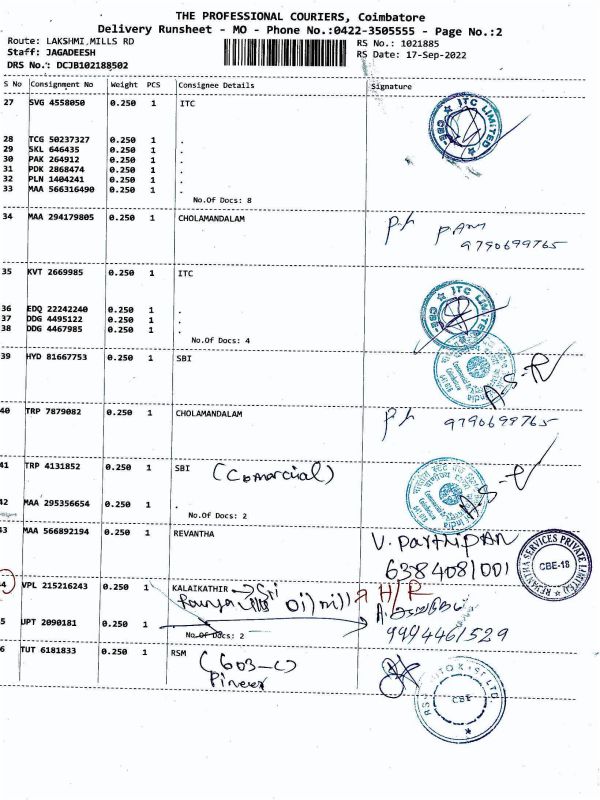 THE PROFESSIONAL COURIERS, Coimbatore
Delivery Runsheet - MO - Phone No.:0422-3505555 - Page No.:2
Route: LAKSHMI,MILLS RD RS No.: 1021885
Staff: JAGADEESH RS Date: 17-Sep-2022
DRS No.: DCJB102188502
S No Consignment No Weight PCS Consignee Details Signature
27 SVG 4558050 0.250 1 ITC
ITC LIMITED CBE
28 TCG 50237327 0.250 1 .
29 SKL 646435 0.250 1 .
30 PAK 264912 0.250 1 .
31 PDK 2868474 0.250 1 .
32 PLN 1404241 0.250 1 .
33 MAA 566316490 0.250 1 .
No.Of Docs: 8
34 MAA 294179805 0.250 1 CHOLAMANDALAM
9790699765
35 KVT 2669985 0.250 1 ITC
ITC LIMITED CBE
36 EDQ 22242240 0.250 1 .
37 DDG 4495122 0.250 1 .
38 DDG 4467985 0.250 1 .
No.Of Docs: 4
39 HYD 81667753 0.250 1 SBI
40 TRP 7879082 0.250 1 CHOLAMANDALAM
9790699765
41 TRP 4131852 0.250 1 SBI (Comarcial)
42 MAA 295356654 0.250 1 .
No.Of Docs: 2
43 MAA 566892194 0.250 1 REVANTHA
6384081001
REVANTHA SERVICES PRIVATE LIMITED CBE-18
44 VPL 215216243 0.250 1 KALAIKATHIR → Sri
oil mill H/R
UPT 2090181 0.250 1 .
No.Of Docs: 2
9994461529
TUT 6181833 0.250 1 RSM
CBE